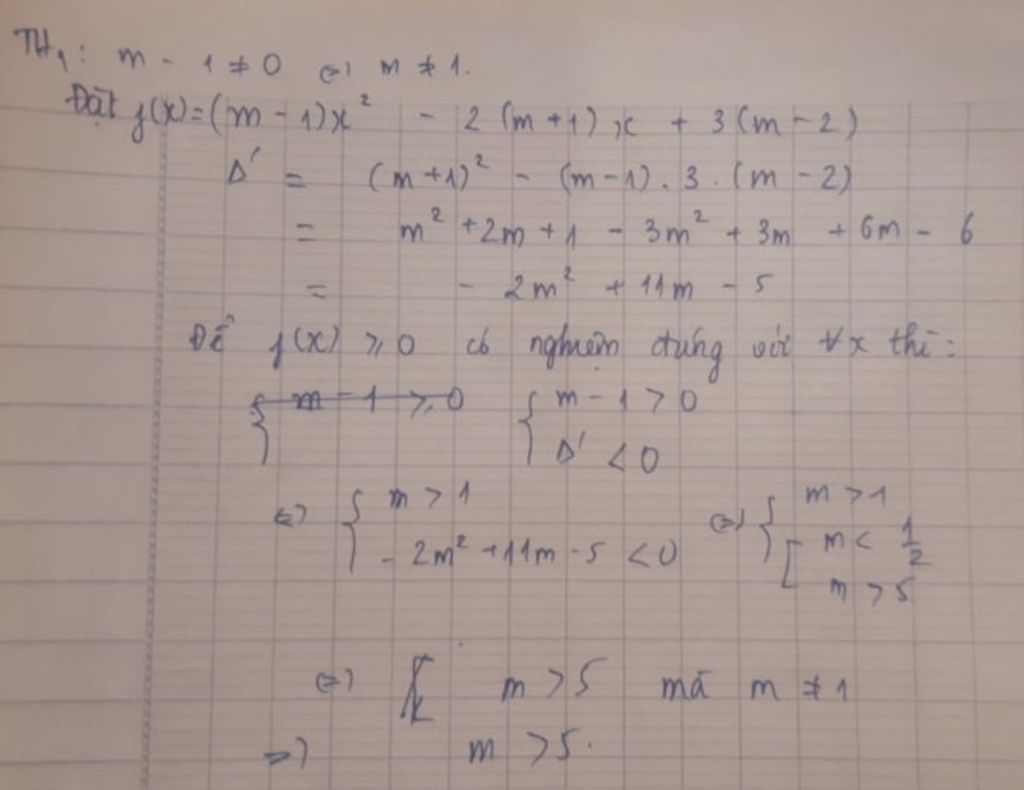 TH₁: m - 1 ≠ 0 ⇔ m ≠ 1.
Đặt f(x) = (m - 1)x² - 2(m + 1)x + 3(m - 2)
Δ' = (m + 1)² - (m - 1) . 3 . (m - 2)
= m² + 2m + 1 - 3m² + 3m + 6m - 6
= - 2m² + 11m - 5
Để f(x) ≥ 0 có nghiệm đúng với ∀x thì:
{ m - 1 ≥ 0 { m - 1 > 0
Δ' < 0
⇔ { m > 1 ⇔ { m > 1
- 2m² + 11m - 5 < 0 [ m < 1/2
m > 5
⇔ m > 5 mà m ≠ 1
⇒ m > 5.